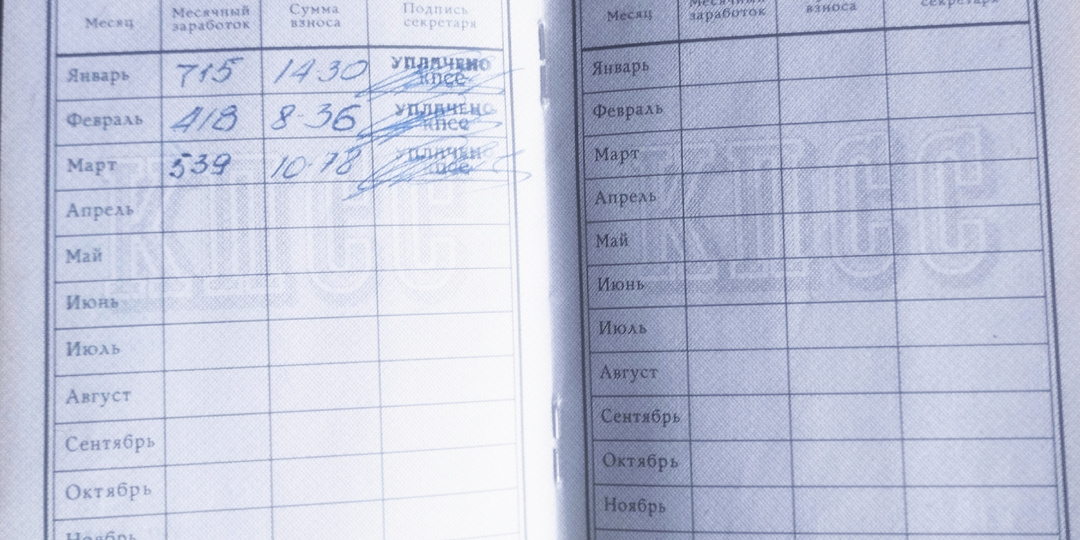 Месяц Месячный заработок Сумма взноса Подпись секретаря
Январь 715 14-30 УПЛАЧЕНО КПСС
Февраль 418 8-36 УПЛАЧЕНО КПСС
Март 539 10-78 УПЛАЧЕНО
Апрель
Май
Июнь
Июль
Август
Сентябрь
Октябрь
Ноябрь
КПСС
Месяц Месячный заработок взноса секретаря
Январь
Февраль
Март
Апрель
Май
Июнь
Июль
Август
Сентябрь
Октябрь
Ноябрь
КПСС